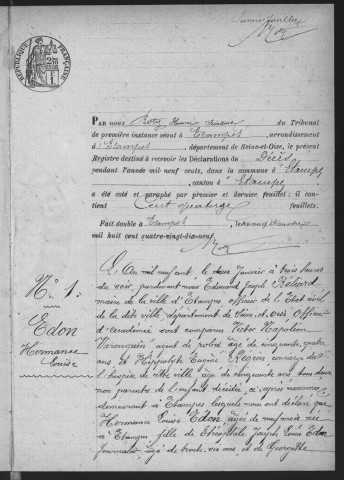 Premier feuillet
RÉPUBLIQUE FRANÇAISE
PAR NOUS, du Tribunal
de première instance séant à Etampes, arrondissement
d'Etampes, département de Seine-et-Oise, le présent
Registre destiné à recevoir les Déclarations de Décès
pendant l'année mil neuf cents, dans la commune d'Etampes
canton d'Etampes
a été coté et paraphé par premier et dernier feuillet: il
contient Cent quatorze feuillets.
Fait double à Etampes, le Décembre
mil huit cent quatre-vingt-dix-neuf.
N° 1.
Edon
Hermance
Louise
L'An mil neuf cent, le deux Janvier à trois heures
du soir, pardevant nous Edmond Joseph Béliard
maire de la ville d'Etampes officier de l'Etat civil
de la dite ville, département de Seine et Oise, officier
d'académie sont comparus Victor Napoléon
agent de police âgé de cinquante quatre
ans et Hippolyte Eugène concierge de
l'hospice de cette ville âgé de cinquante ans tous deux
non parents de l'enfant décédée ci après nommée
demeurant à Etampes lesquels nous ont déclaré que
Hermance Louise Edon âgée de neuf mois née
à Etampes fille de Théophile Joseph Louis Edon
Journalier âgé de trente six ans et de Georgette